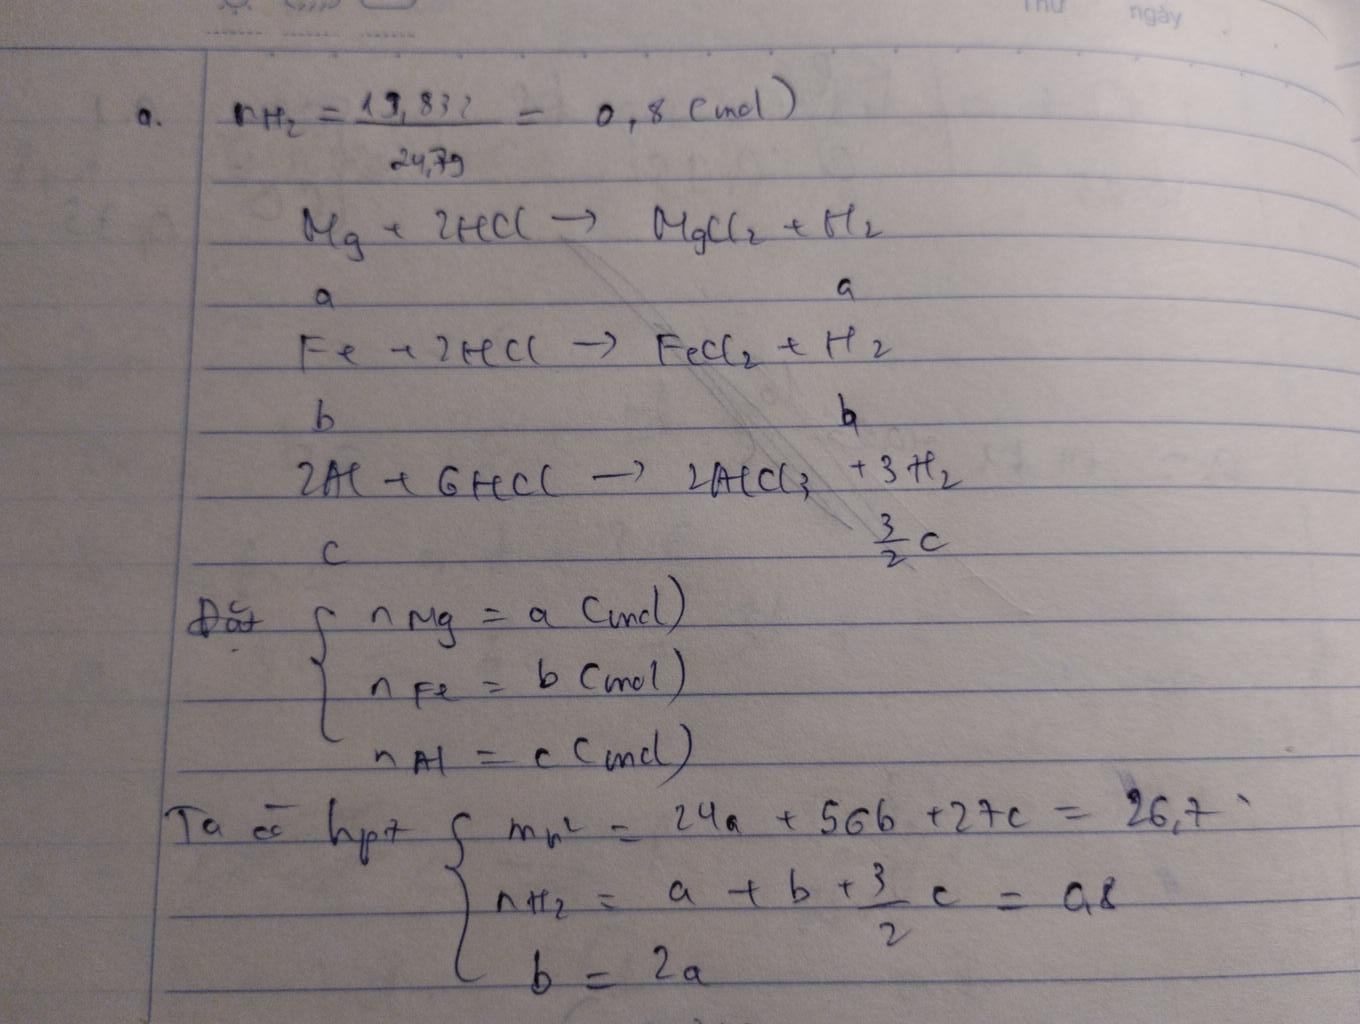 Thứ ngày
a. nH₂ = 19,832 / 24,79 = 0,8 (mol)
Mg + 2HCl → MgCl₂ + H₂
a a
Fe + 2HCl → FeCl₂ + H₂
b b
2Al + 6HCl → 2AlCl₃ + 3H₂
c 3/2 c
Đặt { nMg = a (mol)
nFe = b (mol)
nAl = c (mol)
Ta có hpt { mh² = 24a + 56b + 27c = 26,7
nH₂ = a + b + 3/2 c = 0,8
b = 2a